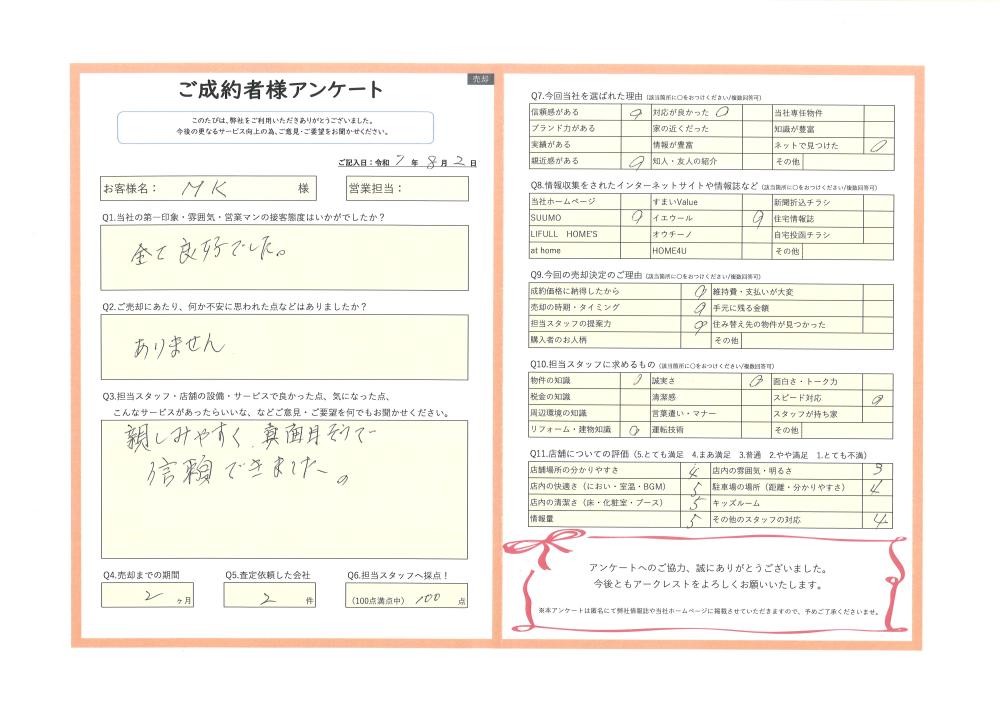 売却
ご成約者様アンケート
このたびは、弊社をご利用いただきありがとうございました。
今後の更なるサービス向上の為、ご意見・ご要望をお聞かせください。
ご記入日：令和 7 年 8 月 2 日
お客様名： MK 様
営業担当：
Q1.当社の第一印象・雰囲気・営業マンの接客態度はいかがでしたか？
全て良好でした。
Q2.ご売却にあたり、何か不安に思われた点などはありましたか？
ありません
Q3.担当スタッフ・店舗の設備・サービスで良かった点、気になった点、
こんなサービスがあったらいいな、などご意見・ご要望を何でもお聞かせください。
親しみやすく、真面目そうで
信頼できました。
Q4.売却までの期間
2 ヶ月
Q5.査定依頼した会社
2 件
Q6.担当スタッフへ採点！
(100点満点中) 100 点
Q7.今回当社を選ばれた理由 (該当箇所に○をおつけください/複数回答可)
信頼感がある ○ 対応が良かった ○ 当社専任物件
ブランド力がある 家の近くだった 知識が豊富
実績がある 情報が豊富 ネットで見つけた ○
親近感がある ○ 知人・友人の紹介 その他
Q8.情報収集をされたインターネットサイトや情報誌など (該当箇所に○をおつけください/複数回答可)
当社ホームページ すまいValue 新聞折込チラシ
SUUMO ○ イエウール ○ 住宅情報誌
LIFULL HOME'S オウチーノ 自宅投函チラシ
at home HOME4U その他
Q9.今回の売却決定のご理由 (該当箇所に○をおつけください/複数回答可)
成約価格に納得したから ○ 維持費・支払いが大変
売却の時期・タイミング ○ 手元に残る金額
担当スタッフの提案力 ○ 住み替え先の物件が見つかった
購入者のお人柄 その他
Q10.担当スタッフに求めるもの (該当箇所に○をおつけください/複数回答可)
物件の知識 ○ 誠実さ ○ 面白さ・トーク力
税金の知識 清潔感 スピード対応 ○
周辺環境の知識 言葉遣い・マナー スタッフが持ち家
リフォーム・建物知識 ○ 運転技術 その他
Q11.店舗についての評価 (5.とても満足 4.まあ満足 3.普通 2.やや満足 1.とても不満)
店舗場所の分かりやすさ 4 店内の雰囲気・明るさ 3
店内の快適さ(におい・室温・BGM) 5 駐車場の場所(距離・分かりやすさ) 4
店内の清潔さ(床・化粧室・ブース) 5 キッズルーム
情報量 5 その他のスタッフの対応 4
アンケートへのご協力、誠にありがとうございました。
今後ともアークレストをよろしくお願いいたします。
※本アンケートは匿名にて弊社情報誌や当社ホームページに掲載させていただきますので、予めご了承くださいませ。